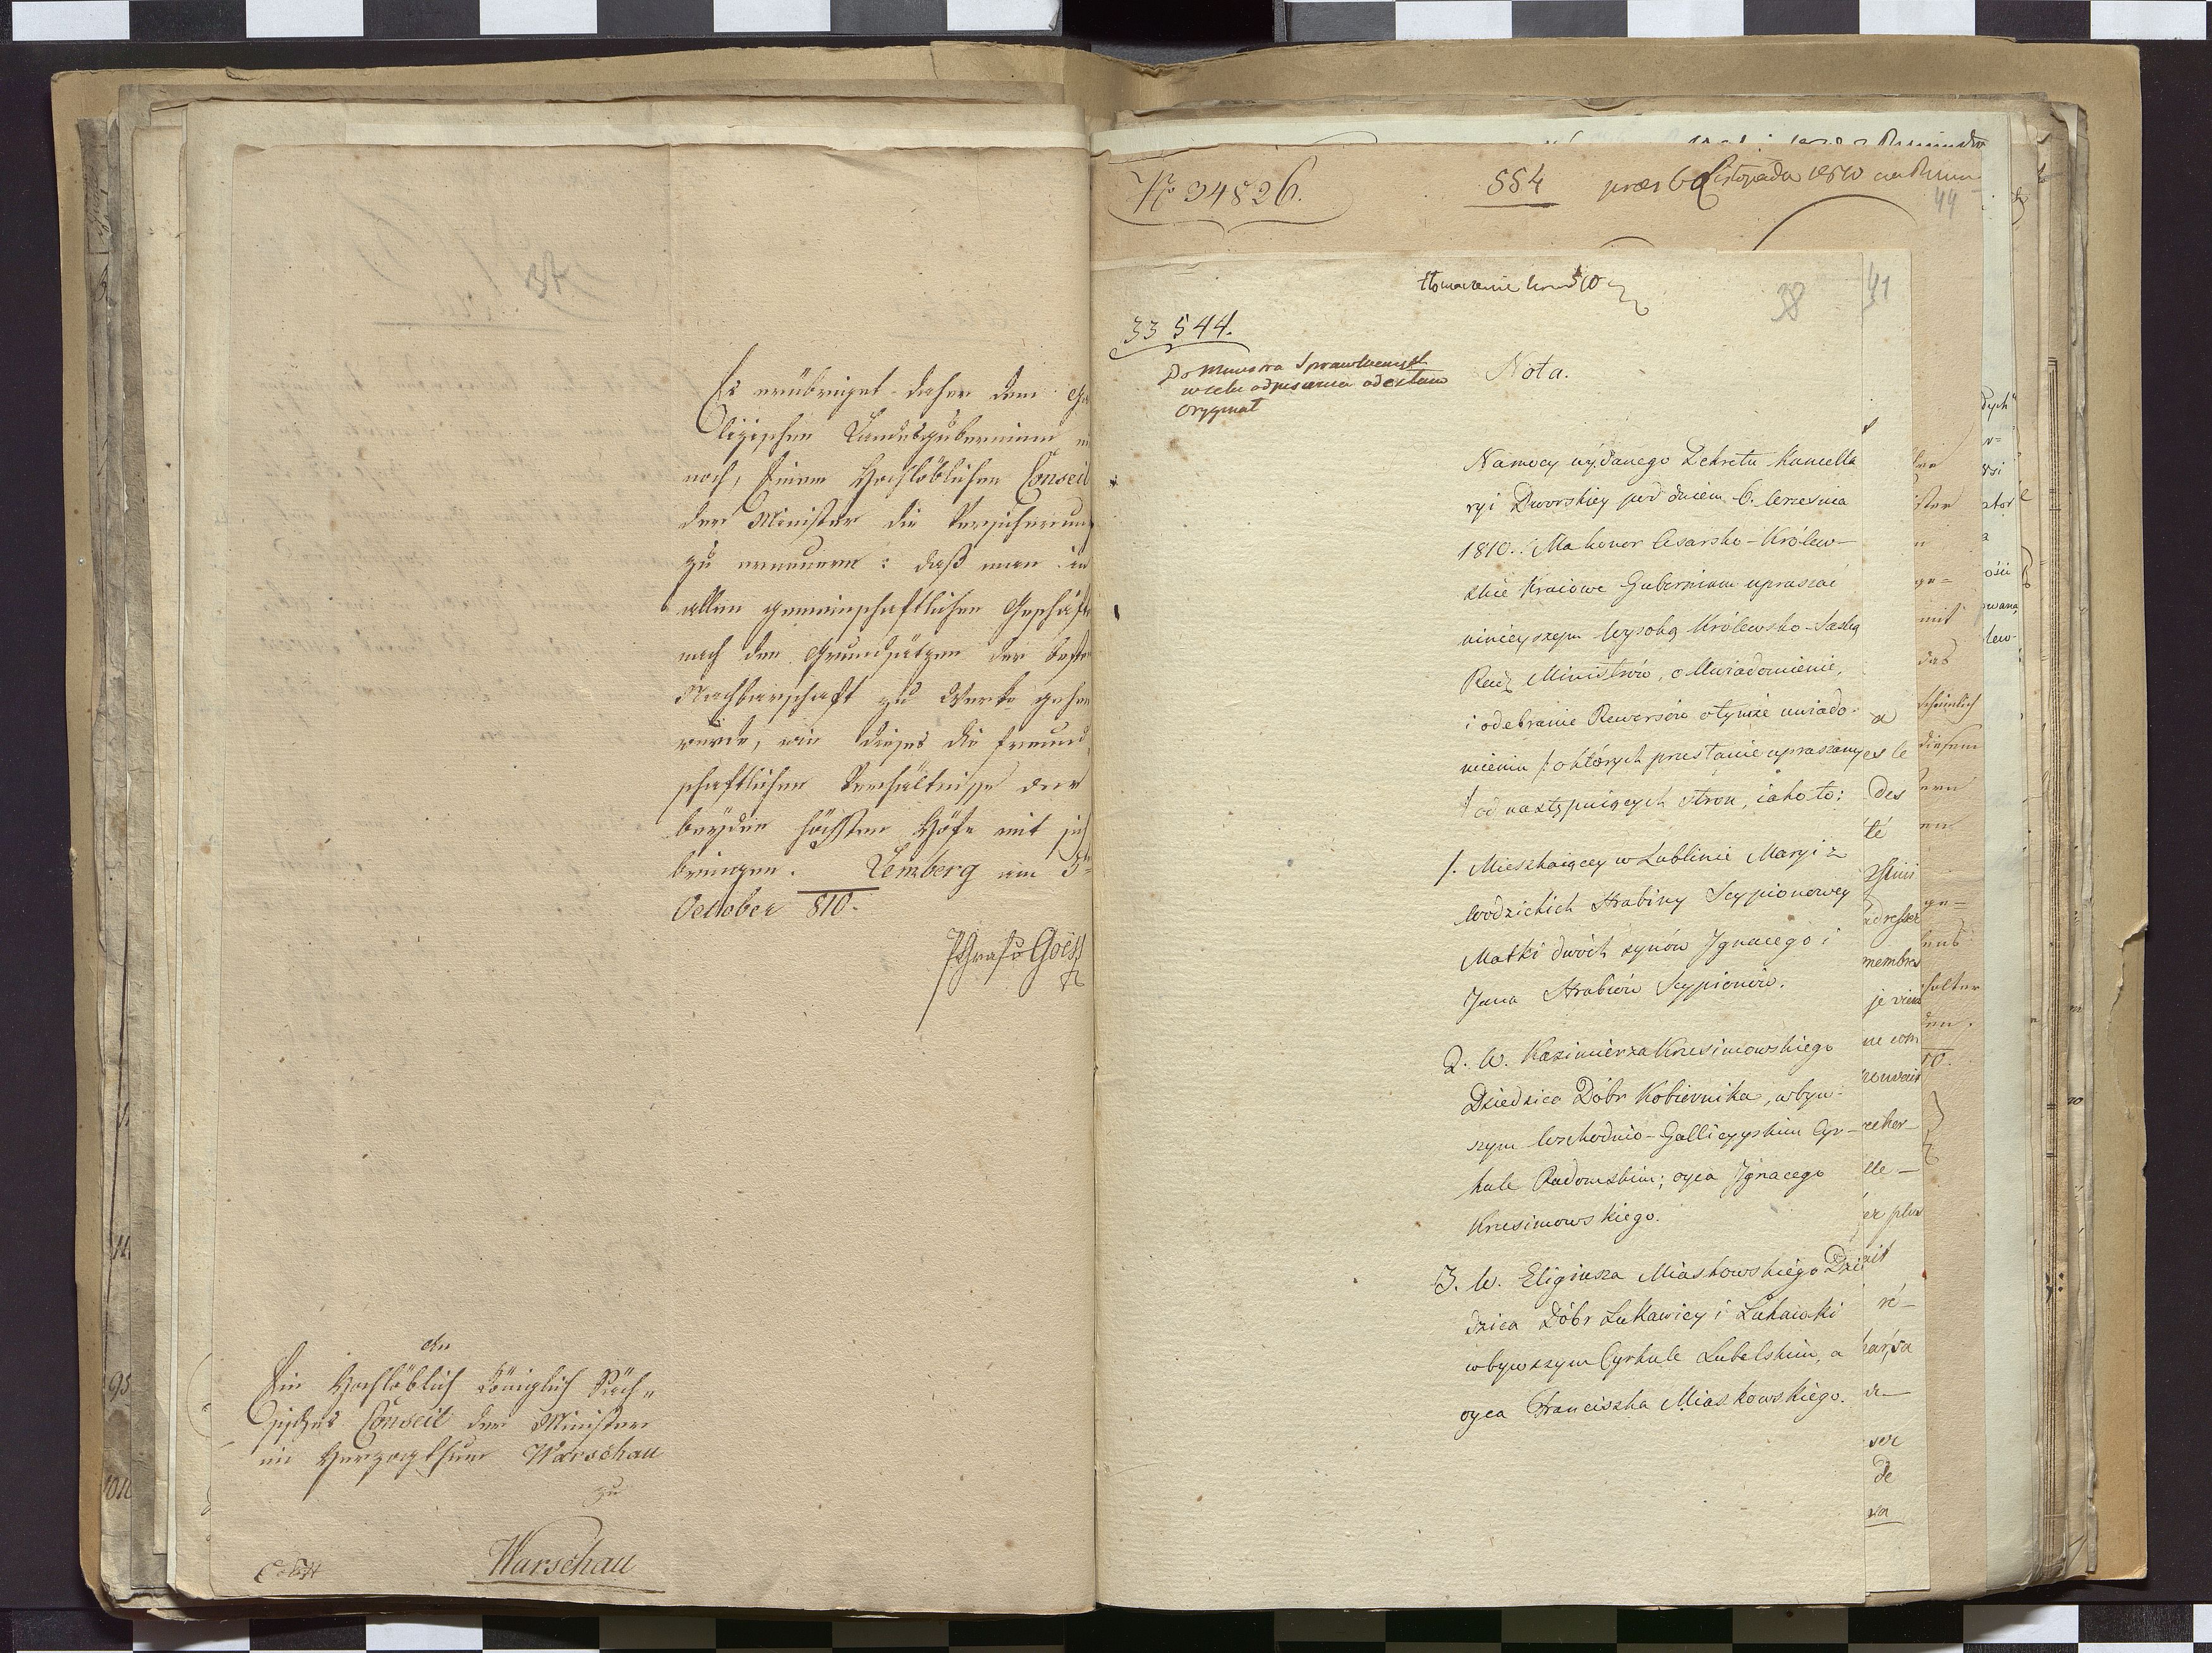 Es erübriget daher dem Ga
lizischen Landesgubernium
noch, Einem Hochlöblichen Conseil
der Minister die Versicherung
zu erneuern: daß man in
allen gemeinschaftlichen Geschäft
nach den Grundsätzen der besten
Nachbarschaft zu Werke gehen
werde, wie dieses die freund
schaftlichen Verhältnisse der
beyden höchsten Höfe mit sich
bringen. Lemberg am 5
October 810.
Goëss
An
Ein Hochlöblich Königlich Säch„
sisches Conseil der Minister
im Herzogthum Warschau
zu
Warschau
No 34826.
554 præs 6 Listopada 1810
44
41
38
33544.
Do Ministra Sprawiedliwości
w celu odpisania odesłano
Orygynał
Nota.
Namocy wydanego Dekretu Kancella
ryi Dworskiey pod dniem 6. Września
1810. Ma honor Cesarsko-Królew-
skie Kraiowe Gubernium upraszać
ninieyszym Wysoką Królewsko-Saską
Radę Ministrów, o Uwiadomienie,
i odebranie Rewersów otymże uwiado-
mieniu /: októrych przesłanie upraszamy
od następuiących stron, iako to:
1. Mieszkaiącey w Lublinie Maryi z
Wodzickich Hrabiny Scypionowey
Matki dwóch synów Ignacego i
Jana Hrabiów Scypionów.
2. W. Kazimierza Krzesimowskiego
Dziedzica Dóbr Kobiernika, w byw-
szym Wschodnio-Gallicyyskim Cyr-
kule Radomskim; oyca Ignacego
Krzesimowskiego.
3. W. Eligiusza Miaskowskiego Dzie
dzica Dóbr Łukawicy i Łukawki
w bywszym Cyrkule Lubelskim, a
oyca Franciszka Miaskowskiego.